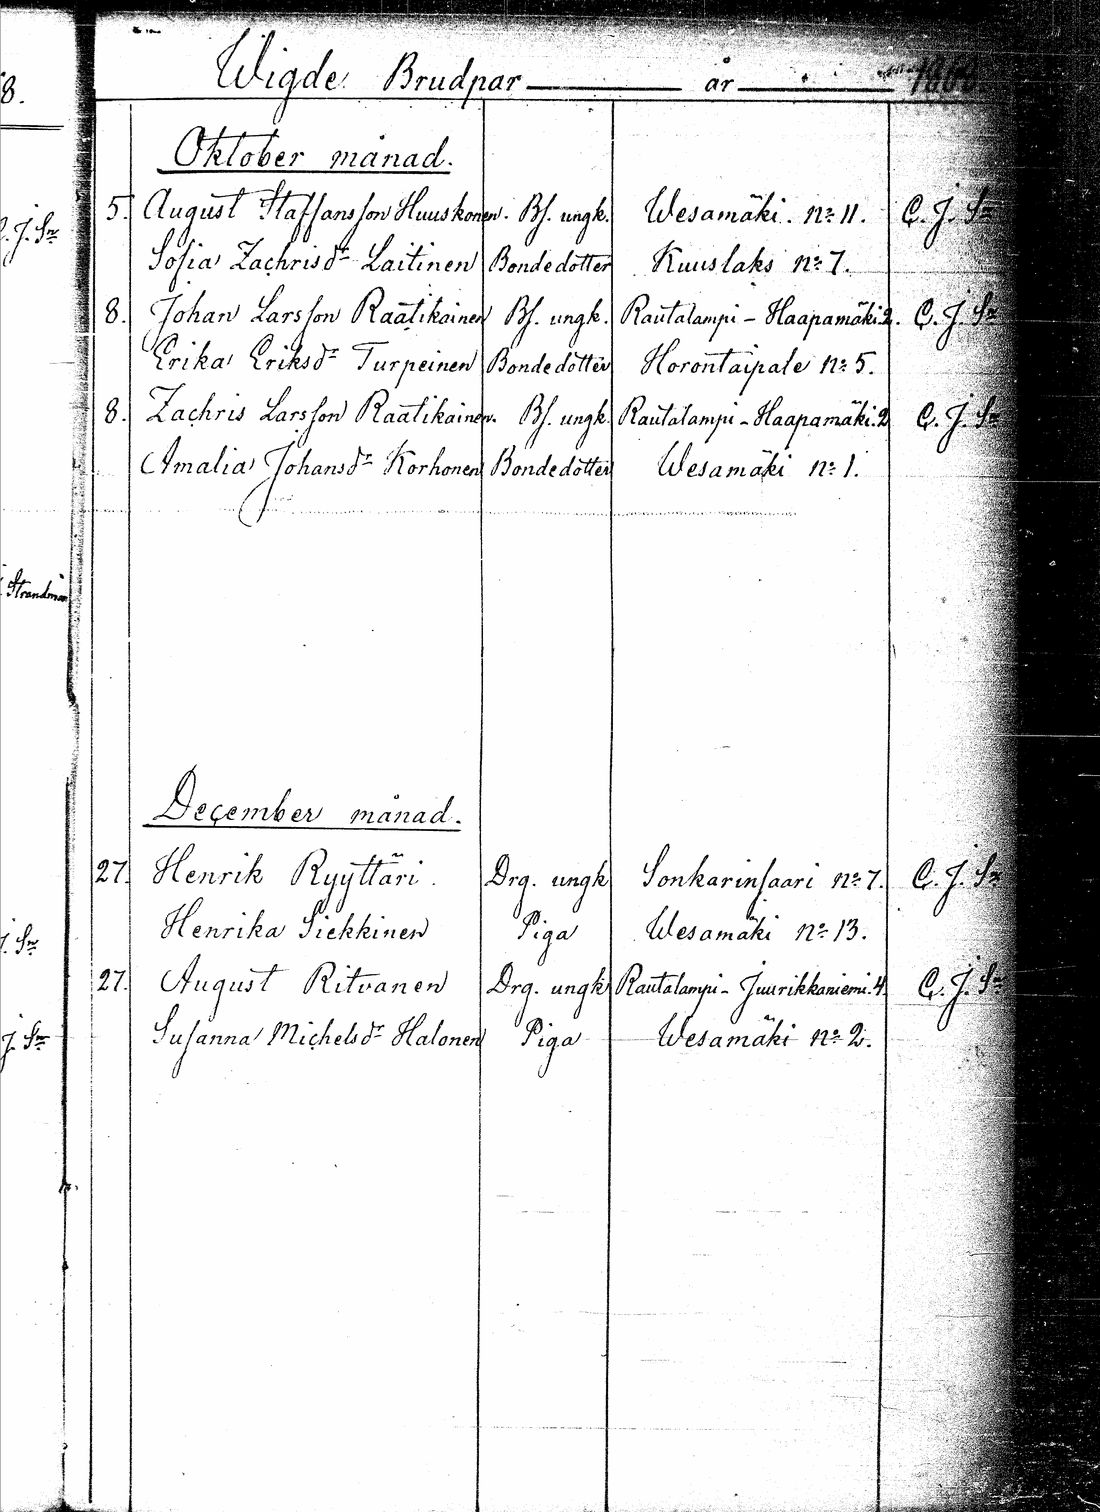 Wigde Brudpar år 1868
Oktober månad.
5. August Staffansson Huuskonen. Bs. ungk. Wesamäki. No 11. C. J. Sn
Sofia Zachrisdr Laitinen Bondedotter Kuuslaks No 7.
8. Johan Larsson Raatikainen Bs. ungk. Rautalampi - Haapamäki. 2. C. J. Sn
Erika Eriksdr Turpeinen Bondedotter Horontaipale No 5.
8. Zachris Larsson Raatikainen. Bs. ungk. Rautalampi - Haapamäki. 2 C. J. Sn
Amalia Johansdr Korhonen Bondedotter Wesamäki No 1.
Strandman
December månad.
27. Henrik Ryyttäri. Drg. ungk Sonkarinsaari No 7. C. J. Sn
Henrika Siekkinen Piga Wesamäki No 13.
27. August Ritvanen Drg. ungk Rautalampi - Juurikkaniemi. 4. C. J. Sn
Susanna Michelsdr Halonen Piga Wesamäki No 2.